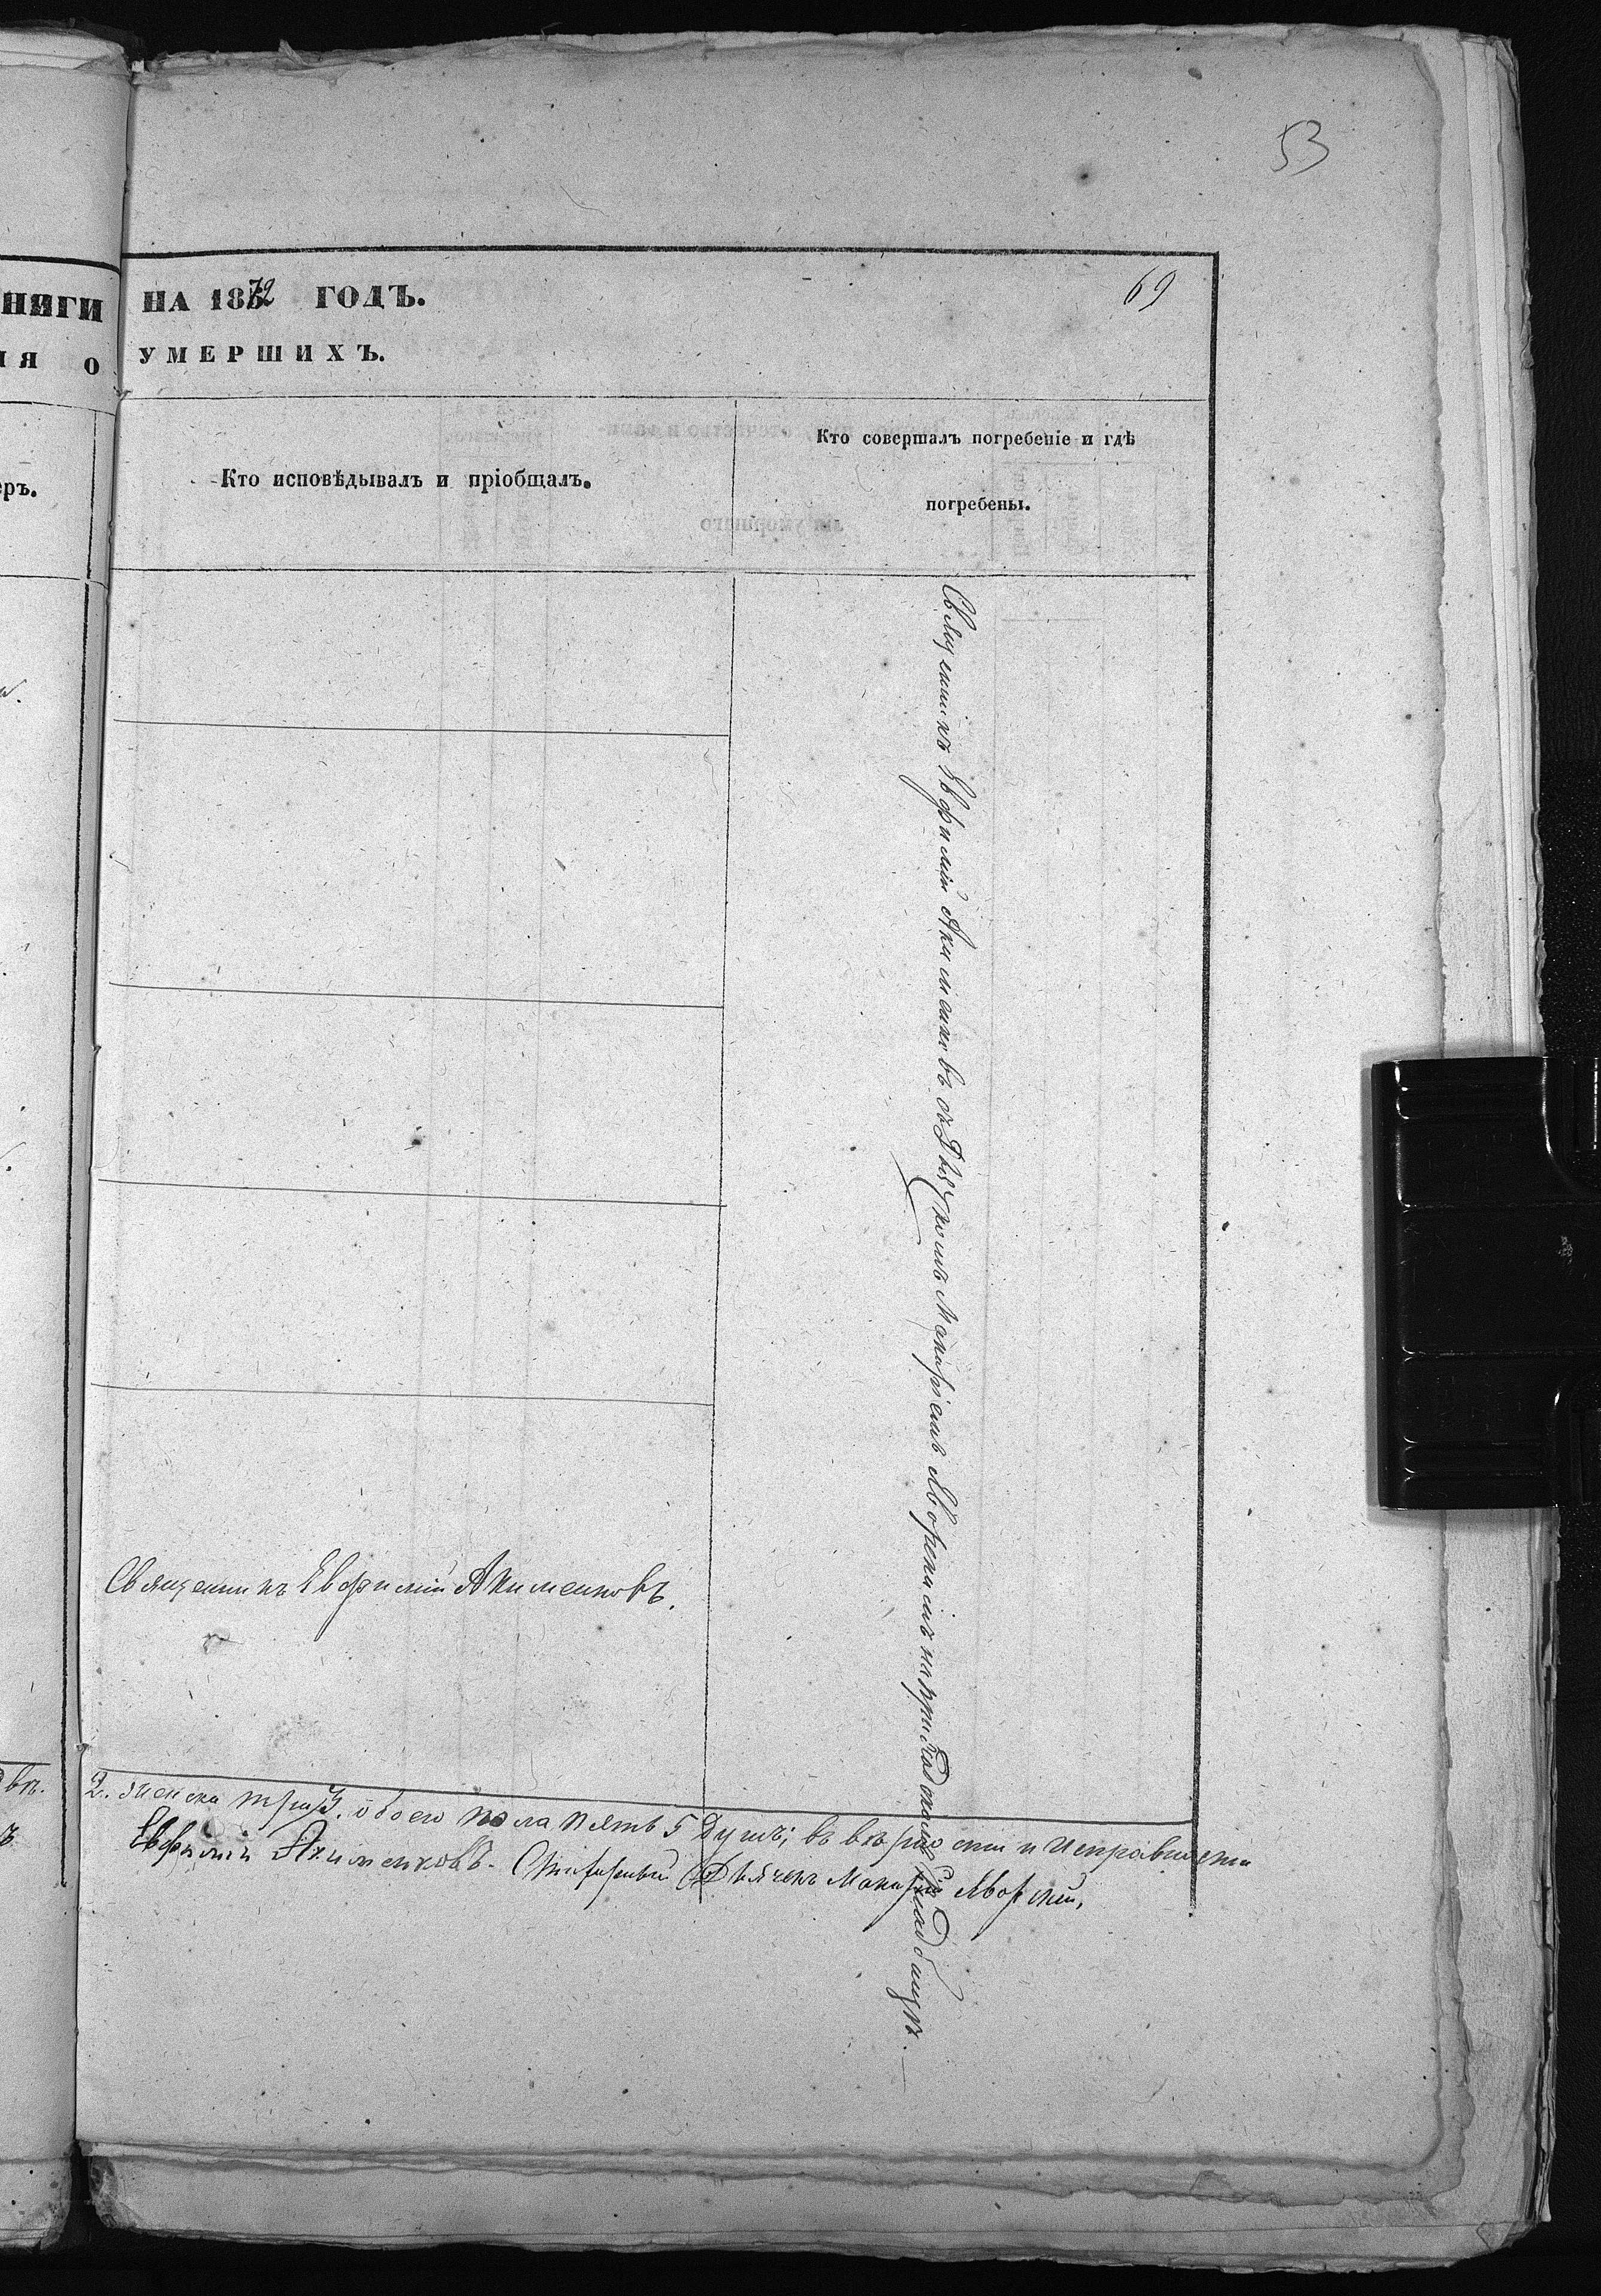 53
НИГИ НА 1872 ГОДЪ.
69
ІЯ О УМЕРШИХЪ.
еръ.
Кто исповѣдывалъ и пріобщалъ.
Кто совершалъ погребеніе и гдѣ
погребены.
Священникъ Евфимій Акименковъ съ Дьячкомъ Макаріемъ Яворскимъ на приходскомъ кладбищѣ.
Священникъ Евфимій Акименковъ.
2. женска три 3. обоего пола пять 5 Душъ; въ вѣрности и исправности
Евфимій Акименковъ. Дьячекъ Макарій Яворскій,